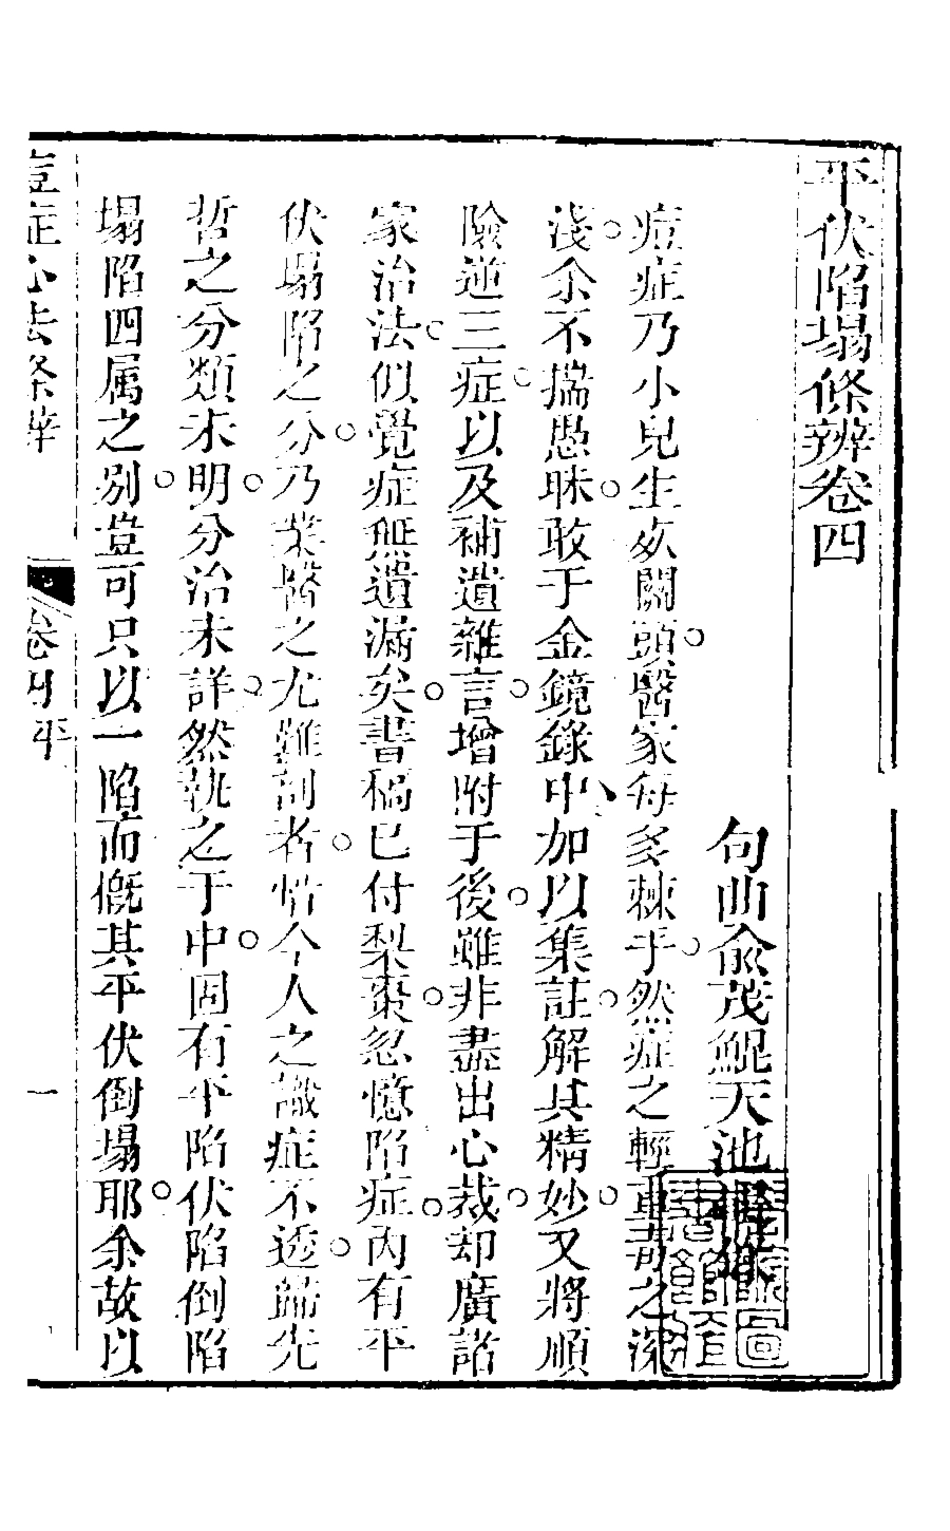 平伏陷塌條辨卷四
句曲俞茂鯤天池
痘症乃小兒生死關頭○醫家每多棘乎○然症之輕重毒之深
淺○余不揣愚昧○敢于金鏡錄中加以集註○解其精妙○又將順
險逆三症○以及補遺雜言○增附于後○雖非盡出心裁○却廣諸
家治法○似覺症無遺漏矣○書稿已付梨棗○忽憶陷症○內有平
伏塌陷之分○乃業醫之尤難剖者○惜今人之識症不透○歸先
哲之分類未明○分治未詳○然執之于中○固有平陷伏陷倒陷
塌陷四属之别○豈可只以一陷而慨其平伏倒塌耶○余故以
痘症心法條辨
卷四平
一